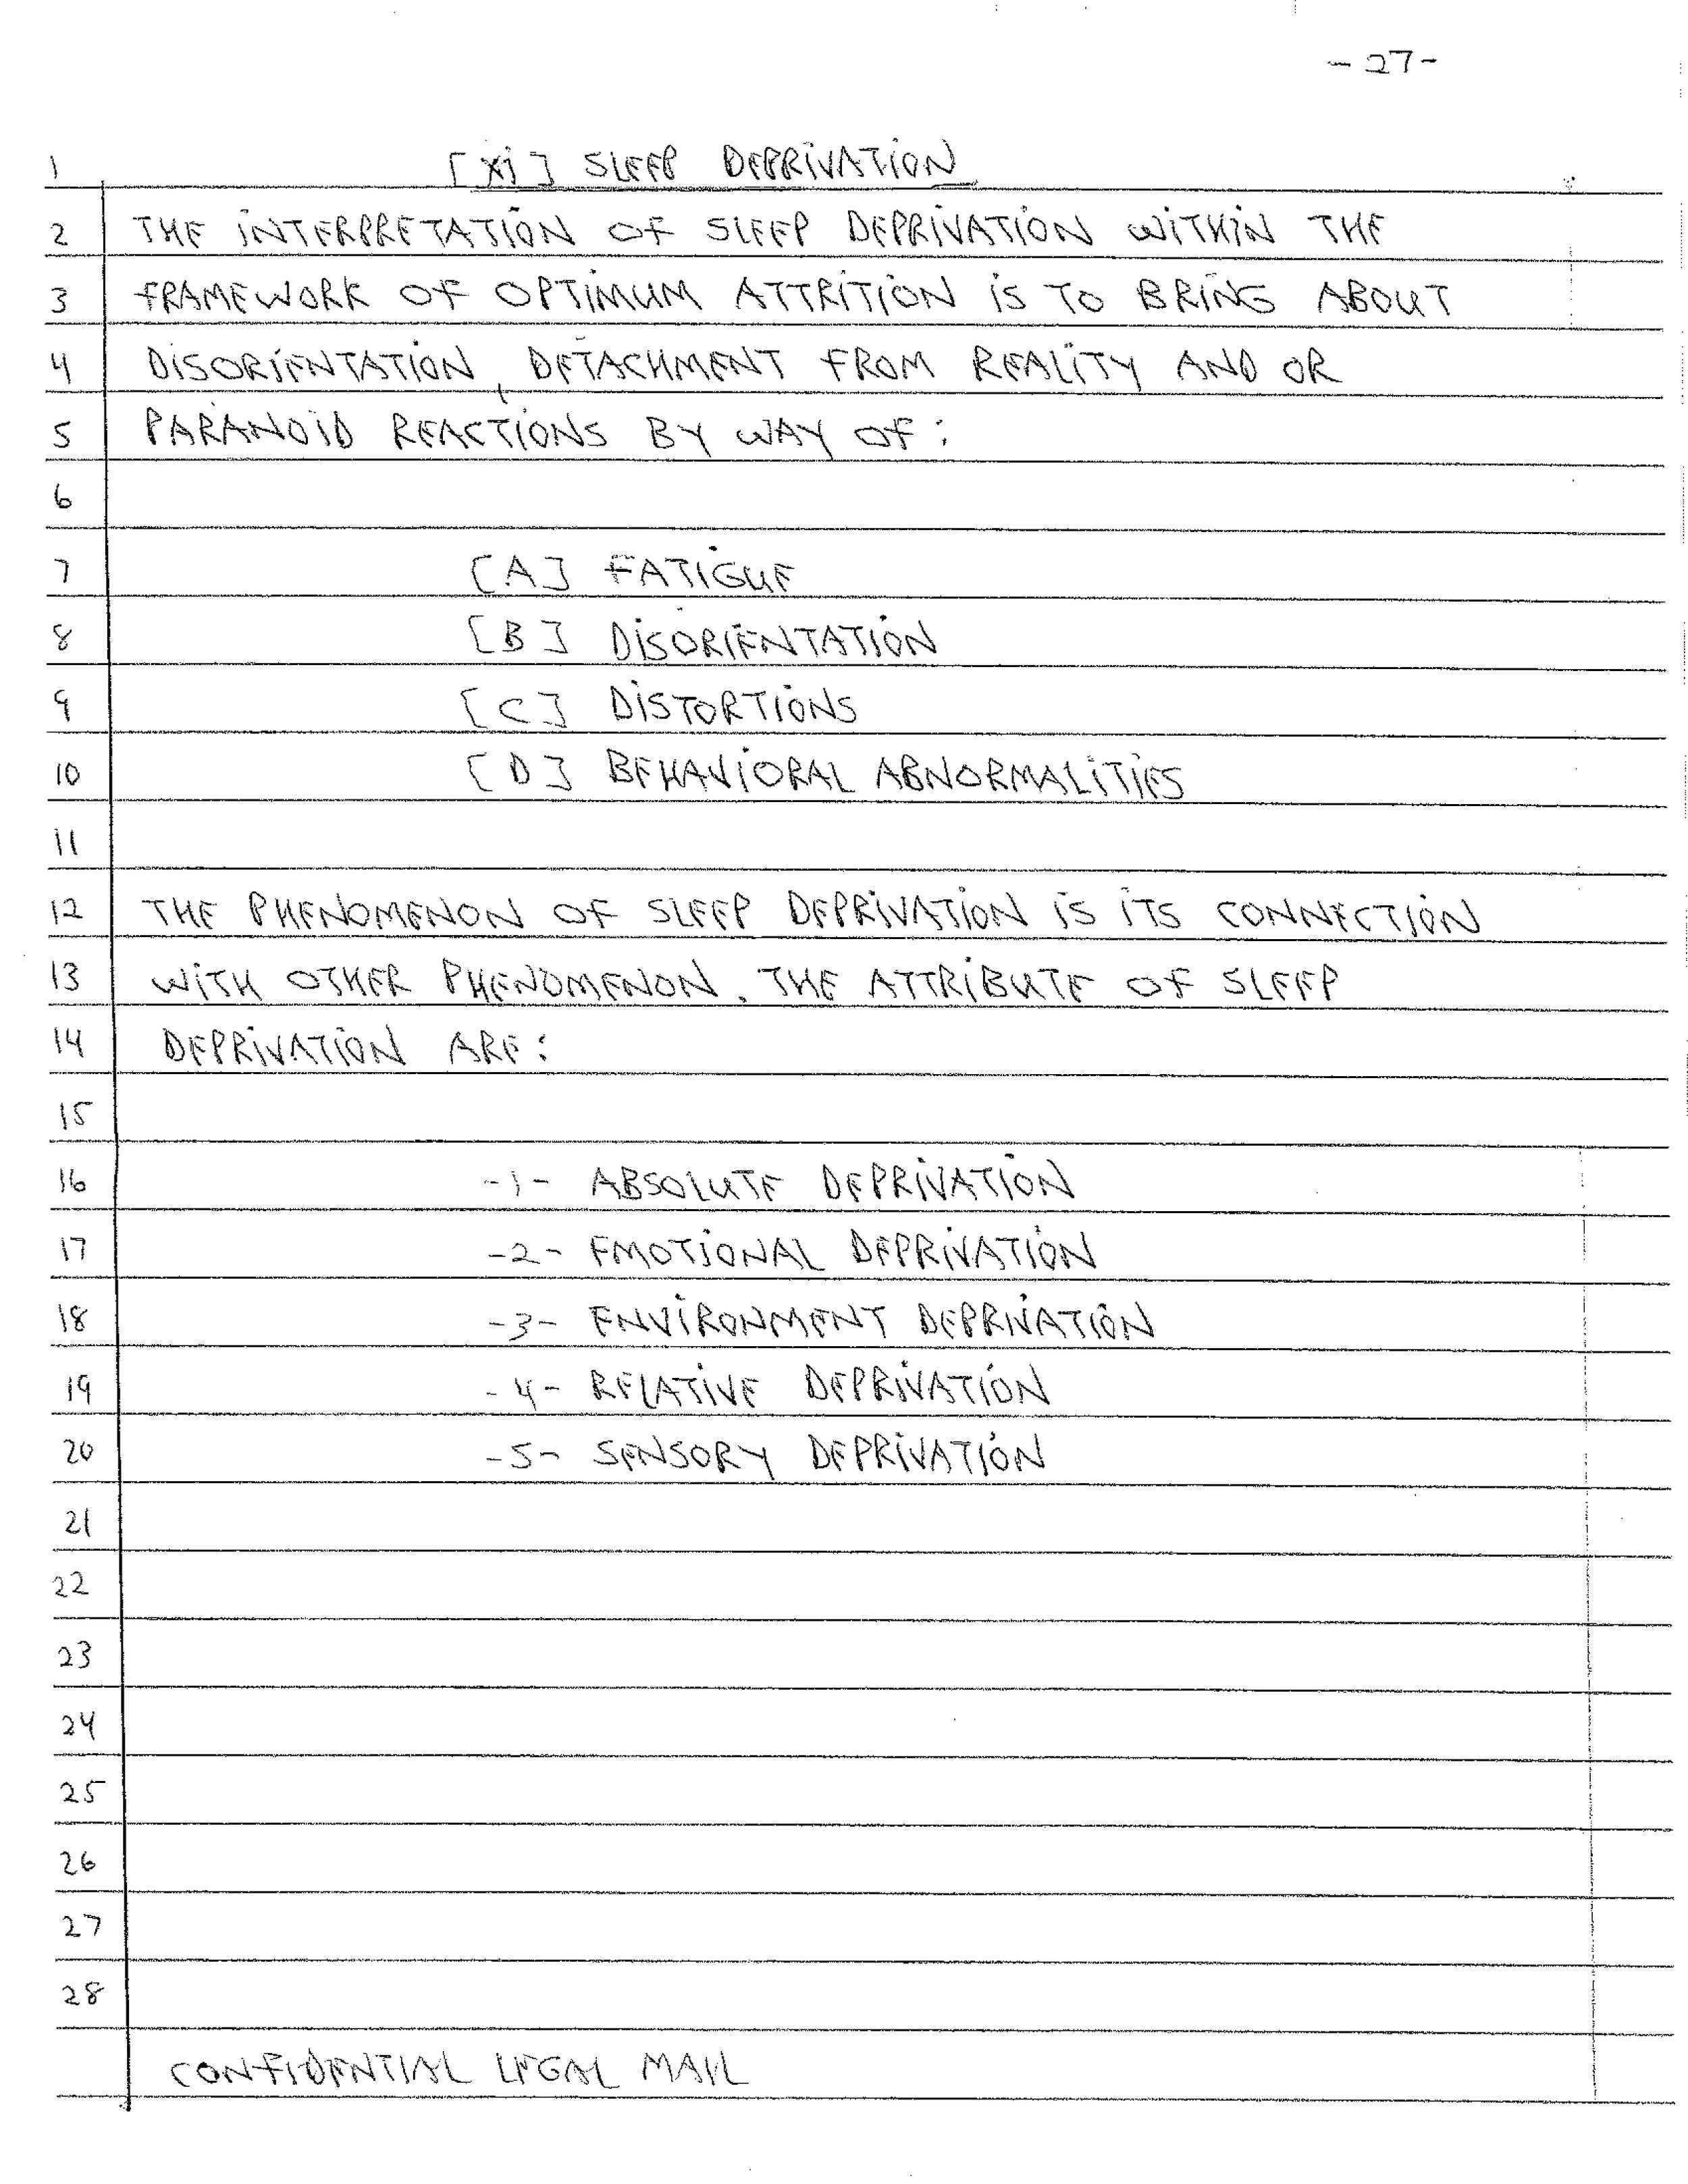 - 27 -
1 [xi] SLEEP DEPRIVATION
2 THE INTERPRETATION OF SLEEP DEPRIVATION WITHIN THE
3 FRAMEWORK OF OPTIMUM ATTRITION IS TO BRING ABOUT
4 DISORIENTATION, DETACHMENT FROM REALITY AND OR
5 PARANOID REACTIONS BY WAY OF:
6
7 [A] FATIGUE
8 [B] DISORIENTATION
9 [C] DISTORTIONS
10 [D] BEHAVIORAL ABNORMALITIES
11
12 THE PHENOMENON OF SLEEP DEPRIVATION IS ITS CONNECTION
13 WITH OTHER PHENOMENON. THE ATTRIBUTE OF SLEEP
14 DEPRIVATION ARE:
15
16 -1- ABSOLUTE DEPRIVATION
17 -2- EMOTIONAL DEPRIVATION
18 -3- ENVIRONMENT DEPRIVATION
19 -4- RELATIVE DEPRIVATION
20 -5- SENSORY DEPRIVATION
21
22
23
24
25
26
27
28
CONFIDENTIAL LEGAL MAIL